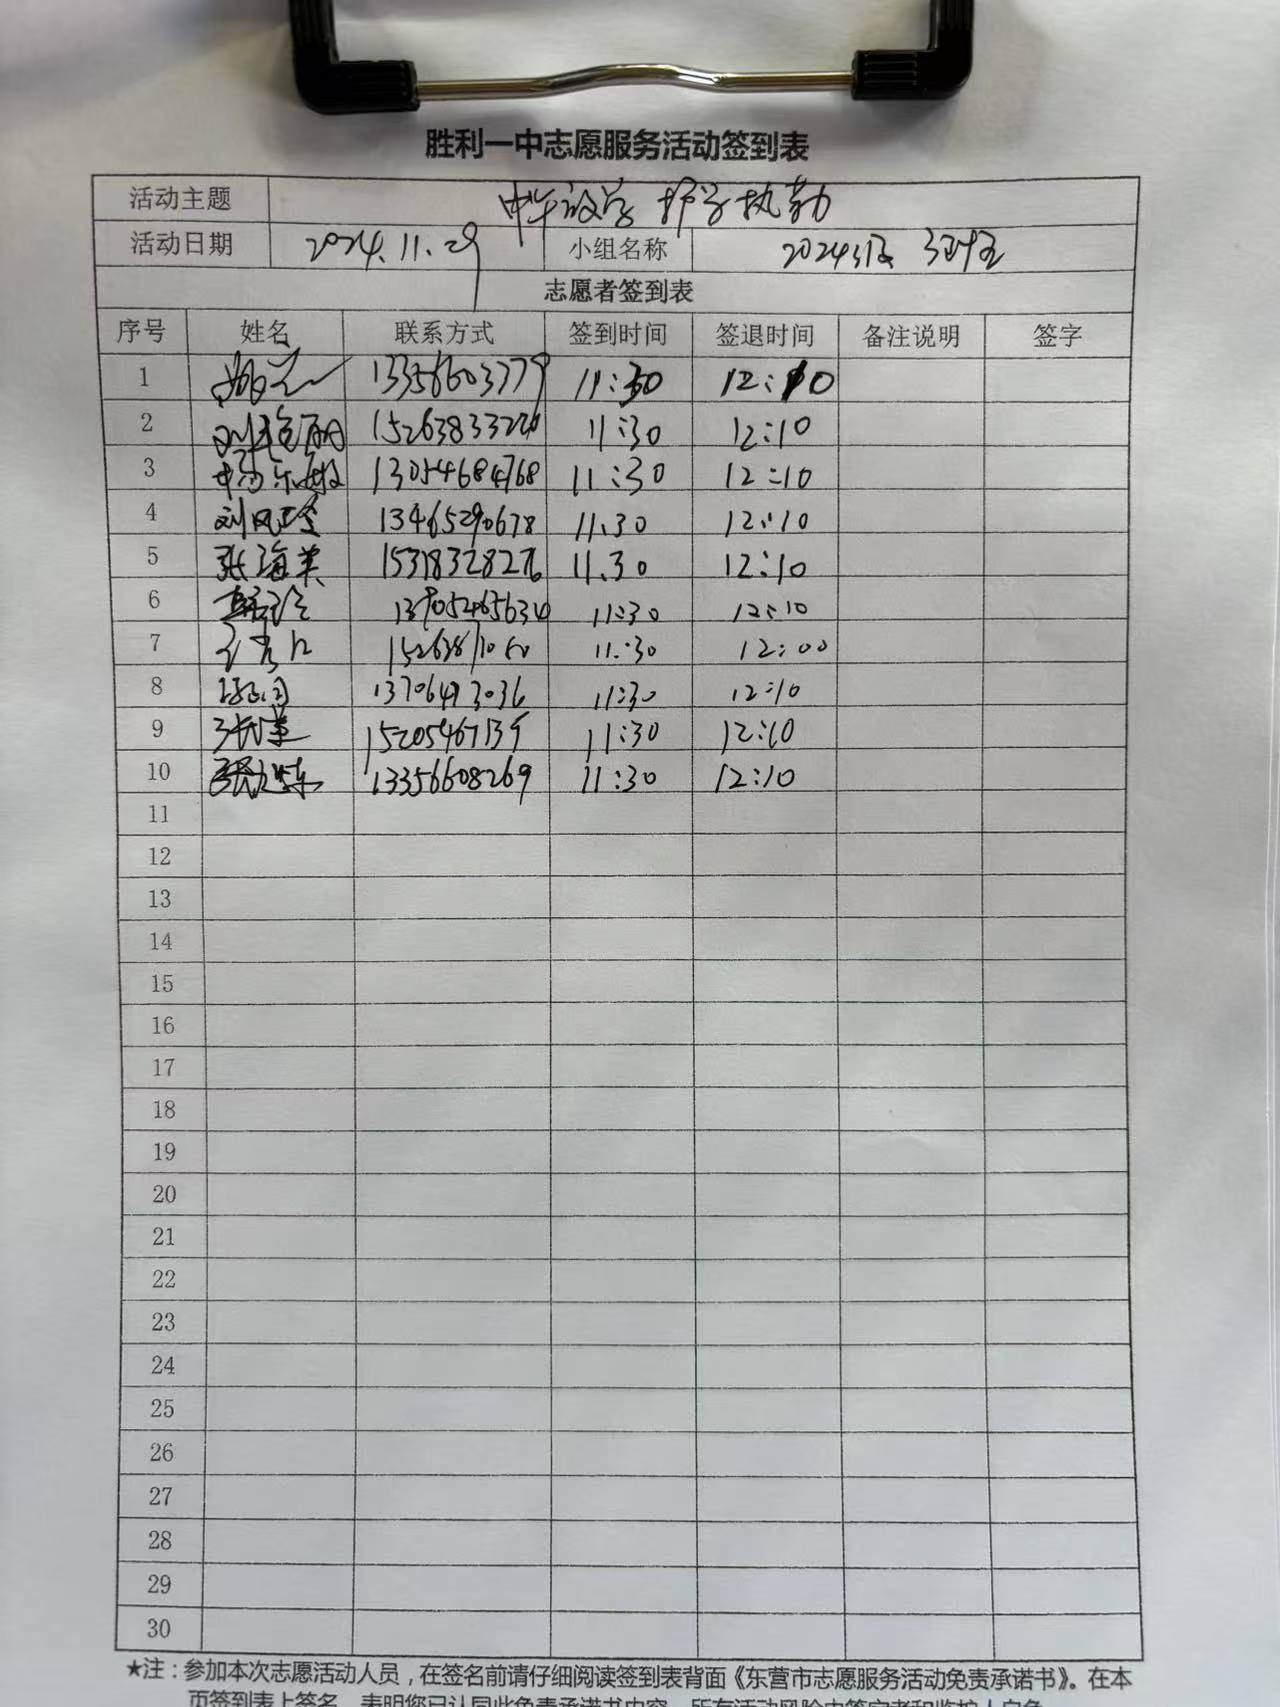 胜利一中志愿服务活动签到表
活动主题 中午放学 护学执勤
活动日期 2024.11.29 小组名称 2024级
志愿者签到表
序号 姓名 联系方式 签到时间 签退时间 备注说明 签字
1 13356603779 11:30 12:10
2 刘艳丽 11:30 12:10
3 13054684768 11:30 12:10
4 刘风玲 13465290678 11.30 12:10
5 张海英 11.30 12:10
6 11:30 12:10
7 11:30 12:00
8 13706473036 11:30 12:10
9 15205467139 11:30 12:10
10 13356608269 11:30 12:10
11
12
13
14
15
16
17
18
19
20
21
22
23
24
25
26
27
28
29
30
★注：参加本次志愿活动人员，在签名前请仔细阅读签到表背面《东营市志愿服务活动免责承诺书》。在本
页签到表上签名，表明您已认同此免责承诺书内容，所有活动风险由签字者和监护人自负